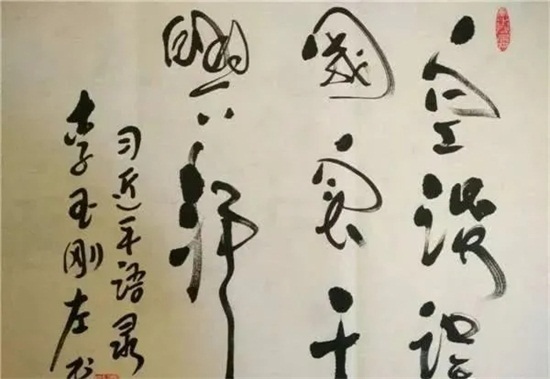 空谈误
國实干
興邦
习近平语录
李玉刚左书